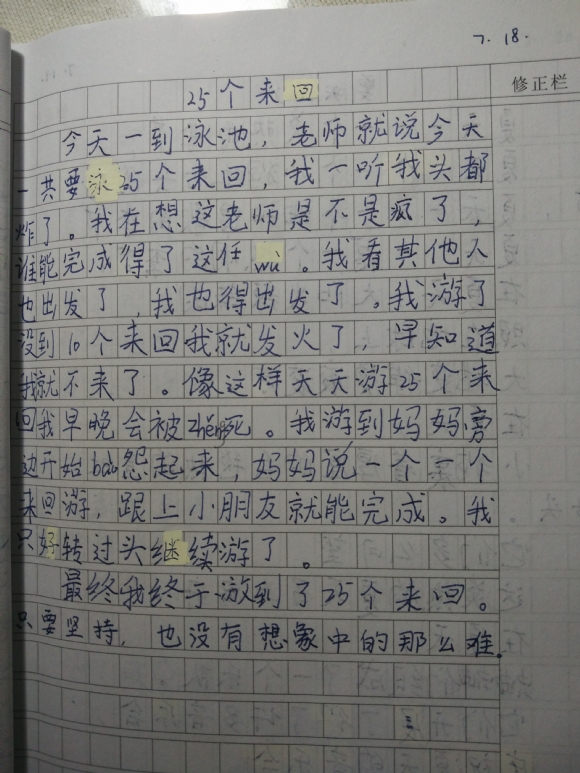 7.18.
修正栏
25个来回
今天一到泳池，老师就说今天
一共要泳25个来回，我一听我头都
炸了。我在想这老师是不是疯了，
谁能完成得了这任wù。我看其他人
也出发了，我也得出发了。我游了
没到10个来回我就发火了，早知道
我就不来了。像这样天天游25个来
回我早晚会被zhēng死。我游到妈妈旁
边开始bào怨起来，妈妈说一个一个
来回游，跟上小朋友就能完成。我
只好转过头继续游了。
最终我终于游到了25个来回。
只要坚持，也没有想象中的那么难。